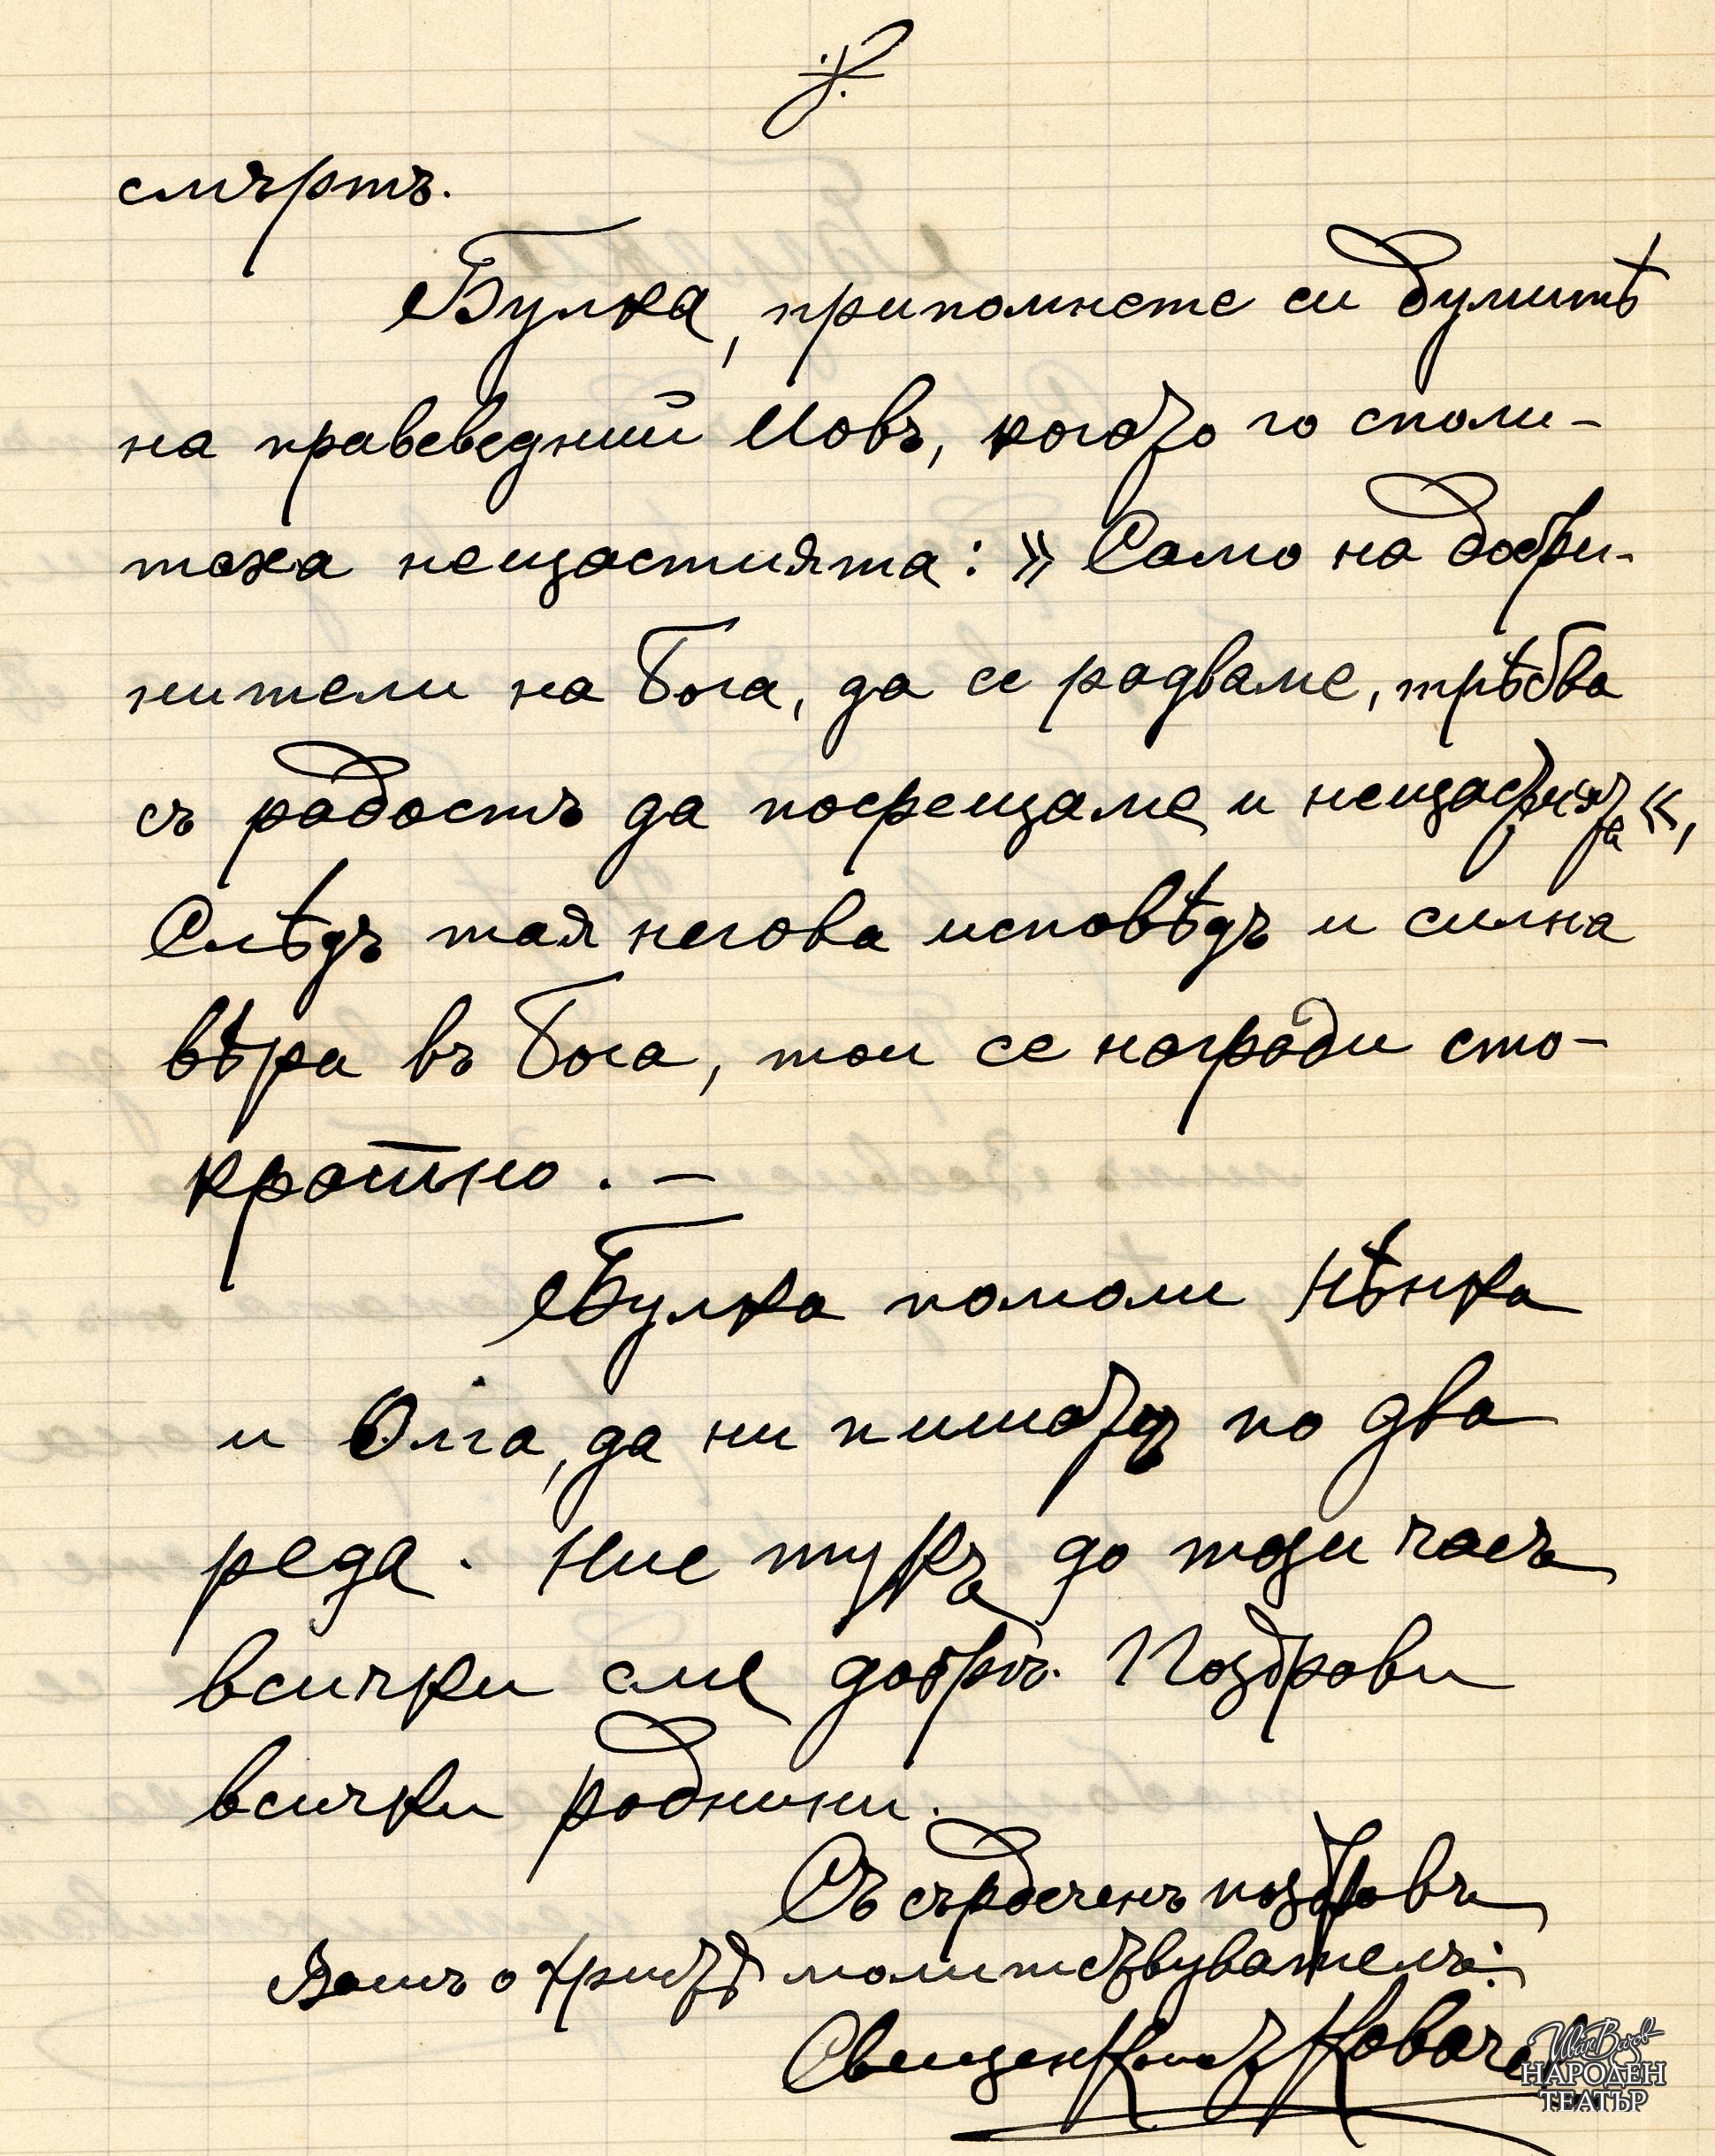 смъртъ.
Булка, припомнете си думитѣ
на праведний Иовъ, когато го споли-
тоха нещастията: » Само на добри-
нители на Бога, да се радваме, трѣбва
съ радость да посрещаме и нещастията «,
Слѣдъ тая негова исповѣдъ и силна
вѣра въ Бога, той се награди сто-
кратно. –
Булка помоли Нѣнка
и Олга, да ни пишатъ по два
реда. Ние тукъ до този часъ
всички сме добрѣ. Поздрави
всички роднини.
Съ сърдеченъ поздравъ
Вашъ о Христѣ молитствувателъ:
Ковачев
Ив. Вазов
НАРОДЕН
ТЕАТЪР